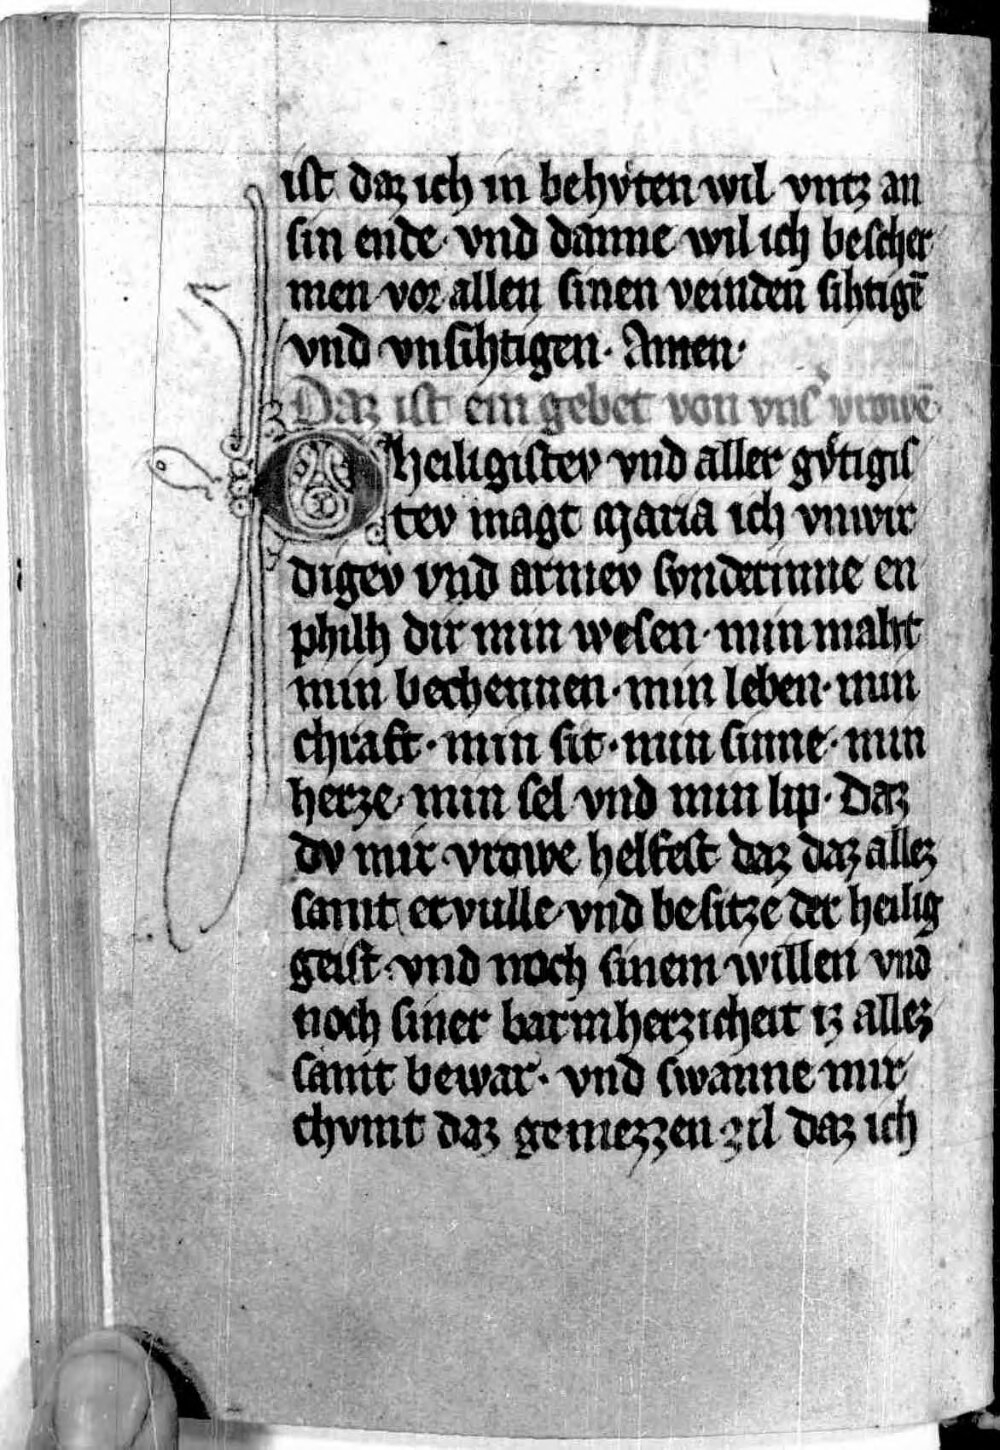 ist daz ich in behv̊ten wil vntz an
sin ende · vnd danne wil ich bescher
men vor allen sinen veinden sihtigē
vnd vnsihtigen · Amen ·
Daz ist ein gebet von vnsˀ vrowē
O heiligistev vnd aller gv̊tigis
tev magt Maria ich vnwir
digev vnd armev svnderinne en
philh dir min wesen · min maht
min bechennen · min leben · min
chraft · min sit · min sinne · min
herze · min sel vnd min lip · Daz
dv mir vrowe helfest daz daz allez
samt ervulle vnd besitze der heilig
geist · vnd noch sinem willen vnd
noch siner barmherzicheit iz allez
samt bewar · vnd swanne mir
chvmt daz gemezzen zil daz ich